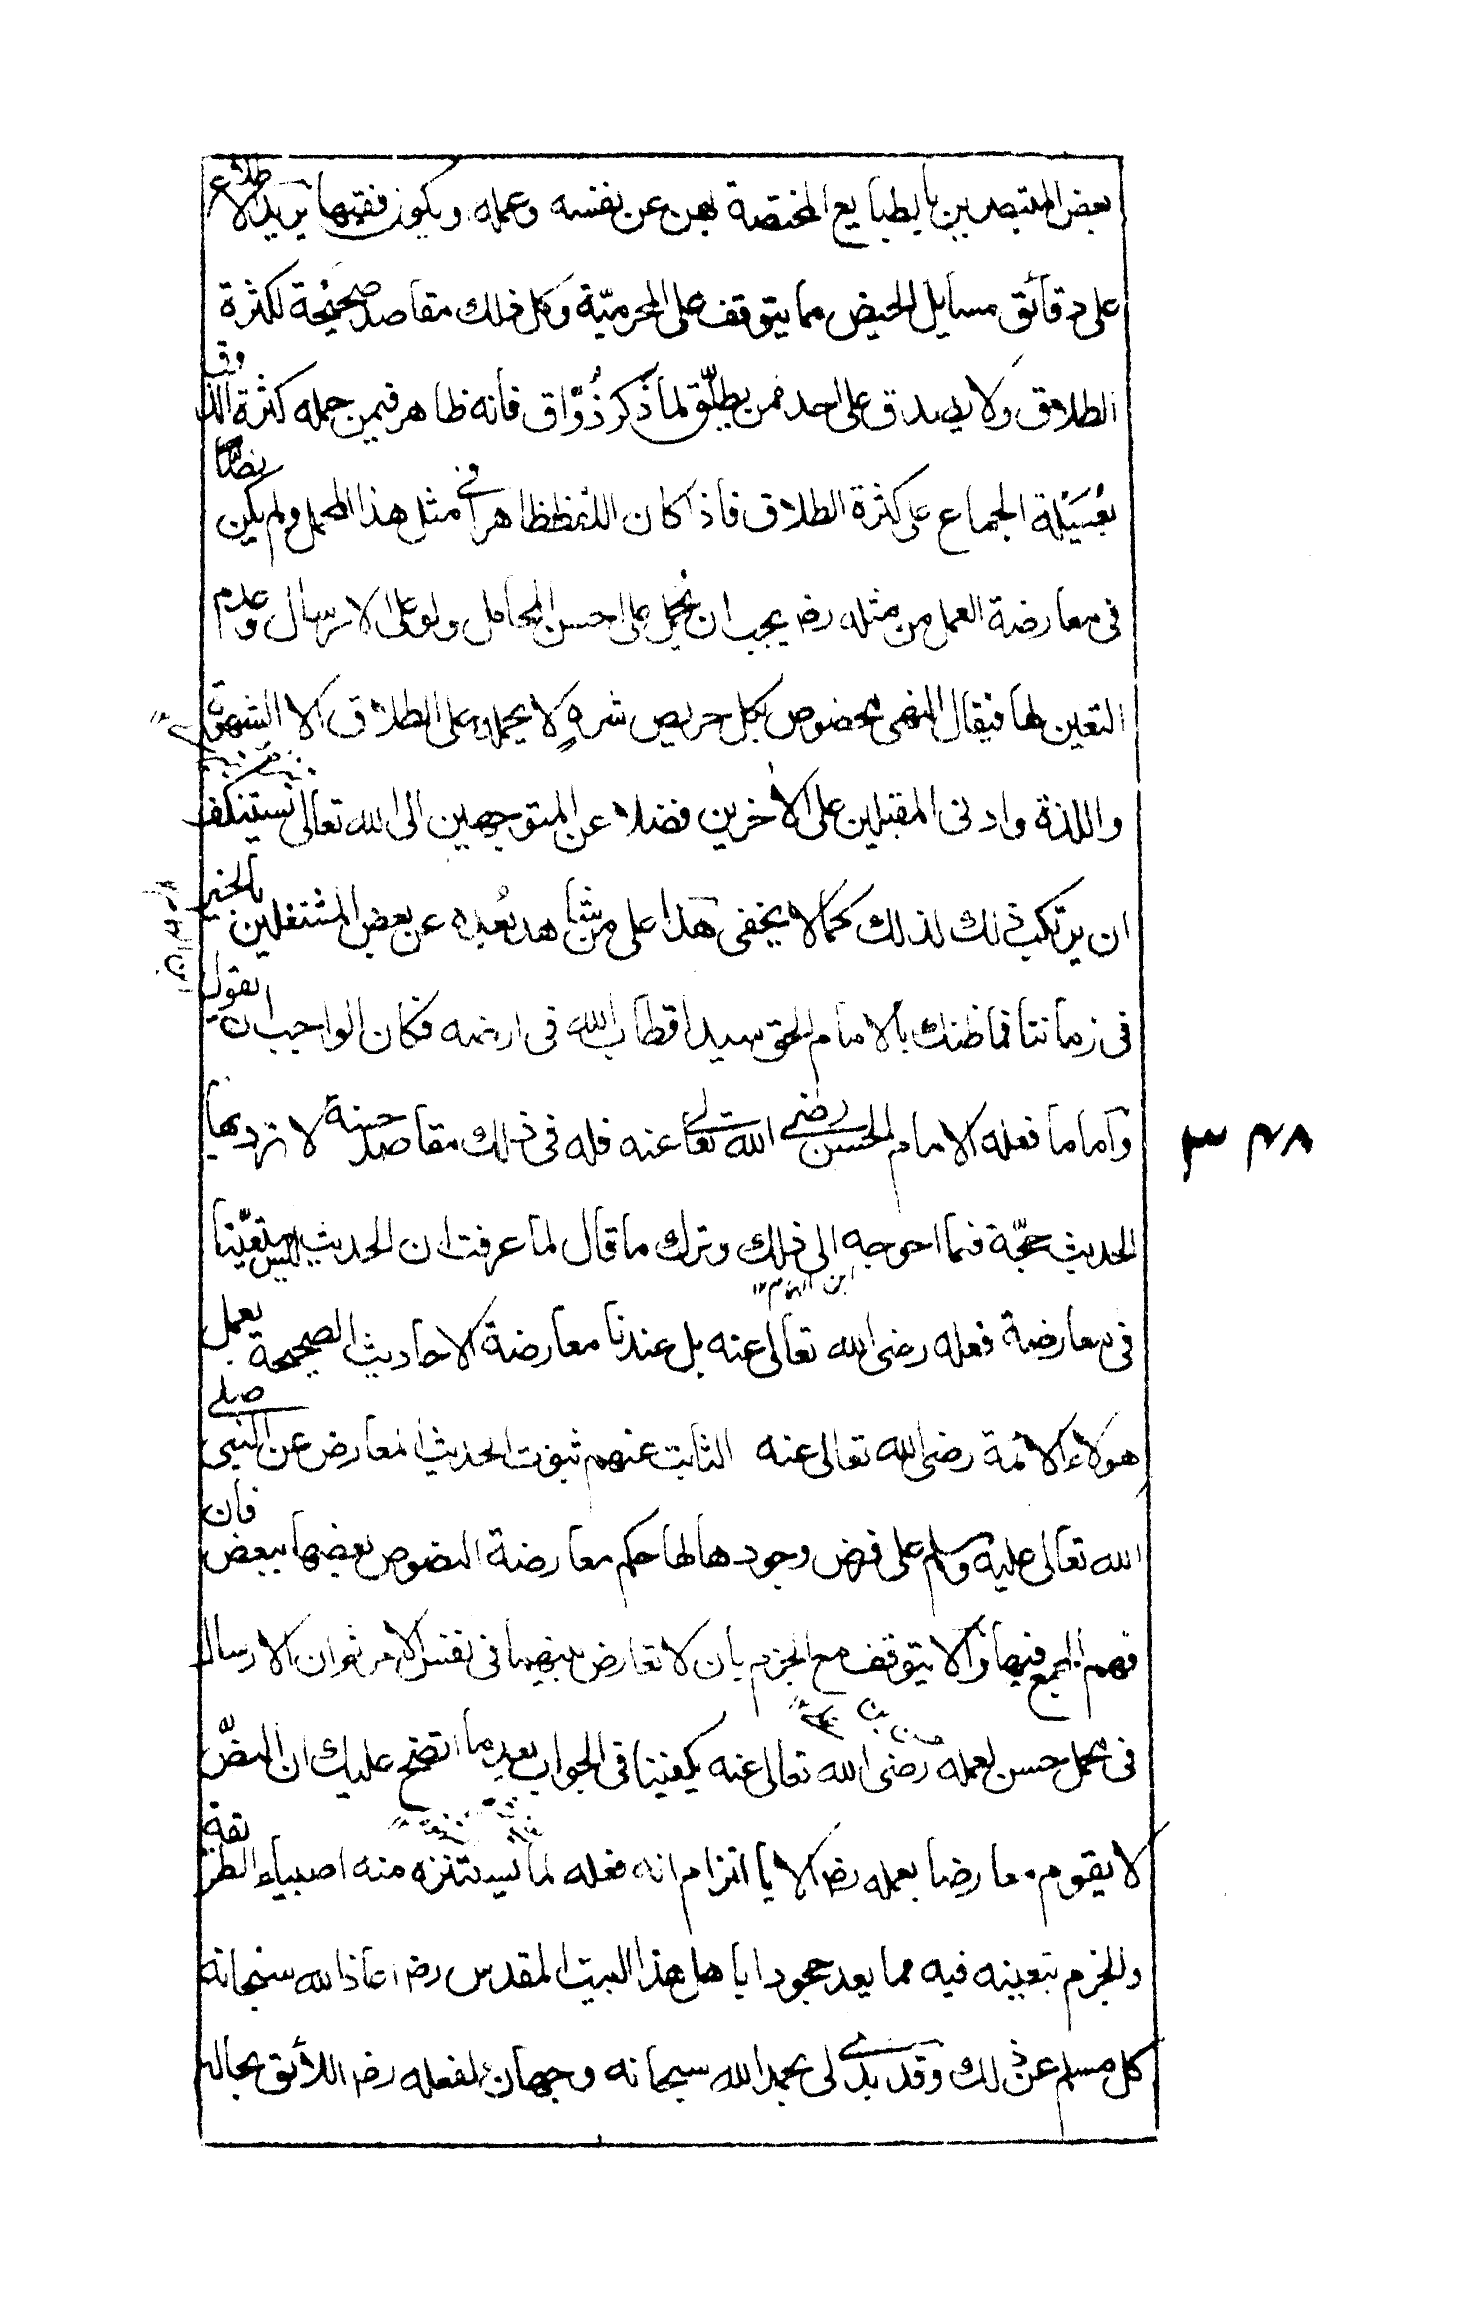 بعض المتبصرين بالطبايع المختصة بهن عن نفسه وعمله ويكون فقيها يريد الاطلاع
على دقائق مسايل الحيض مما يتوقف على المحرميّة وكل ذلك مقاصد صحيحة لكثرة
الطلاق ولا يصدق على احد ممن يطلّق لما ذكر ذُوّاق فانه ظاهر فيمن حمله كثرة الذوق
بعُسَيْلة الجماع على كثرة الطلاق فاذا كان اللفظ ظاهرا في مثل هذا المحمل ولم يكن نصّا
فى معارضة العمل من مثله رضـ يجب ان يحمل على احسن المحامل ولو على الارسال وعدم
التعين لها فيقال النهى مخصوص بكل حريص شرهٍ لا يحمله على الطلاق الا الشهوة
واللذة وادنى المقبلين على الأخرين فضلا عن المتوجهين الى الله تعالى يستنكف
ان يرتكب ذلك لذلك كما لا يخفى هذا على من شاهد بُعده عن بعض المشتغلين بالخير
فى زماننا فما ظنك بالامام الحق سيد اقطاب الله فى ارضه فكان الواجب ان يقول
وأما ما فعله الامام الحسن رضي الله تعالى عنه فله فى ذلك مقاصد حسنة لا تردها
٣٤٨
الحديث حجّة فما احوجه الى ذلك وترك ما قال لما عرفت ان الحديث ليس متعيّنا
ابن الهمام ١٢
فى معارضة فعله رضى الله تعالى عنه بل عندنا معارضة الاحاديث الصحيحة بعمل
هولاء الائمة رضى الله تعالى عنه الثابت عنهم ثبوت الحديث المعارض عن النبى صلى
الله تعالى عليه وسلم على فرض وجودها لها حكم معارضة النصوص بعضها ببعض فان
فهم الجمع فيها والا يتوقف مع الجزم بان لا تعارض بينهما فى نفس الامر ثم ان الارسال
فى محمل حسن لعمله رضى الله تعالى عنه يكفينا فى الجواب بعد ما اتضح عليك ان النصّ
لا يقوم معارضا بعمله رضـ الا بالتزام انه فعله لما يستنزه منه اصبياء الطريقة
والجزم بتعينه فيه مما يعد جحودا باهل هذا البيت المقدس رضـ اعاذ الله سبحانه
كل مسلم عن ذلك وقد بدى لى بحمد الله سبحانه وجهان لفعله رضـ اللائق بحاله